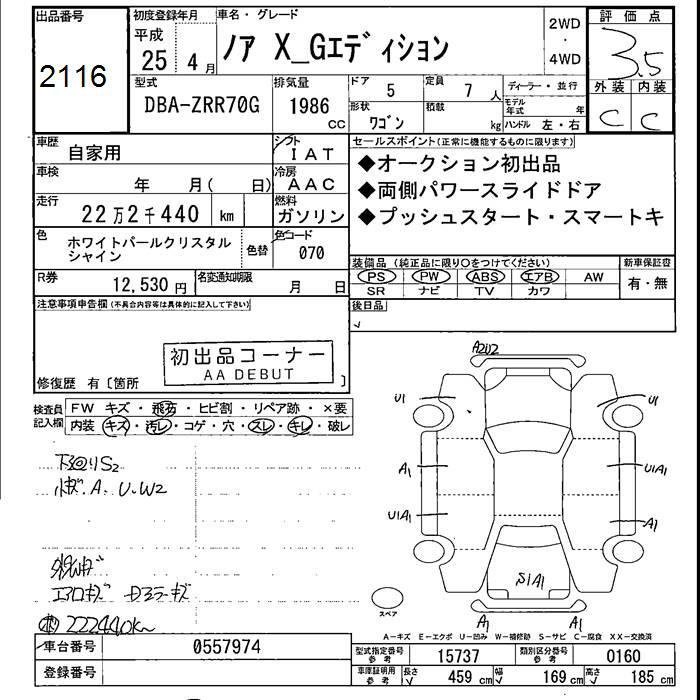 出品番号
2116
初度登録年月
平成
25 4 月
車名・グレード
ノア X_Gエディション
2WD
・
4WD
評価点
3.5
外装 内装
C C
型式
DBA-ZRR70G
排気量
1986
CC
ドア 5
定員 7 人
形状 ワゴン
積載 kg
ディーラー・並行
モデル年式 年
ハンドル 左・右
車歴 自家用
シフト IAT
車検 年 月( 日)
冷房 AAC
走行 22万2千440 km
燃料 ガソリン
色 ホワイトパールクリスタルシャイン
色替
色コード 070
R券 12,530円
名変通知期限 月 日
セールスポイント(正常に機能するものに限ります)
◆オークション初出品
◆両側パワースライドドア
◆プッシュスタート・スマートキ
装備品(純正品に限り○をつけてください)
PS PW ABS エアB AW
SR ナビ TV カワ
新車保証書
有・無
後日品
注意事項申告欄(不具合内容等は具体的に記入して下さい)
初出品コーナー
AA DEBUT
修復歴 有〔箇所 〕
検査員記入欄
FW キズ・飛石・ヒビ割・リペア跡・×要
内装 キズ・汚レ・コゲ・穴・スレ・キレ・破レ
下回りS2
小キズ.A.U.W2
エアロキズ
222440km
A2U2
U1
U1
A1
U1A1
U1A1
A1
S1A1
A1
A1
スペア
A-キズ E-エクボ U-凹み W-補修跡 S-サビ C-腐食 XX-交換済
車台番号 0557974
登録番号
型式指定番号 参考 15737
類別区分番号 参考 0160
車庫証明用 参考 長さ 459 cm 幅 169 cm 高さ 185 cm